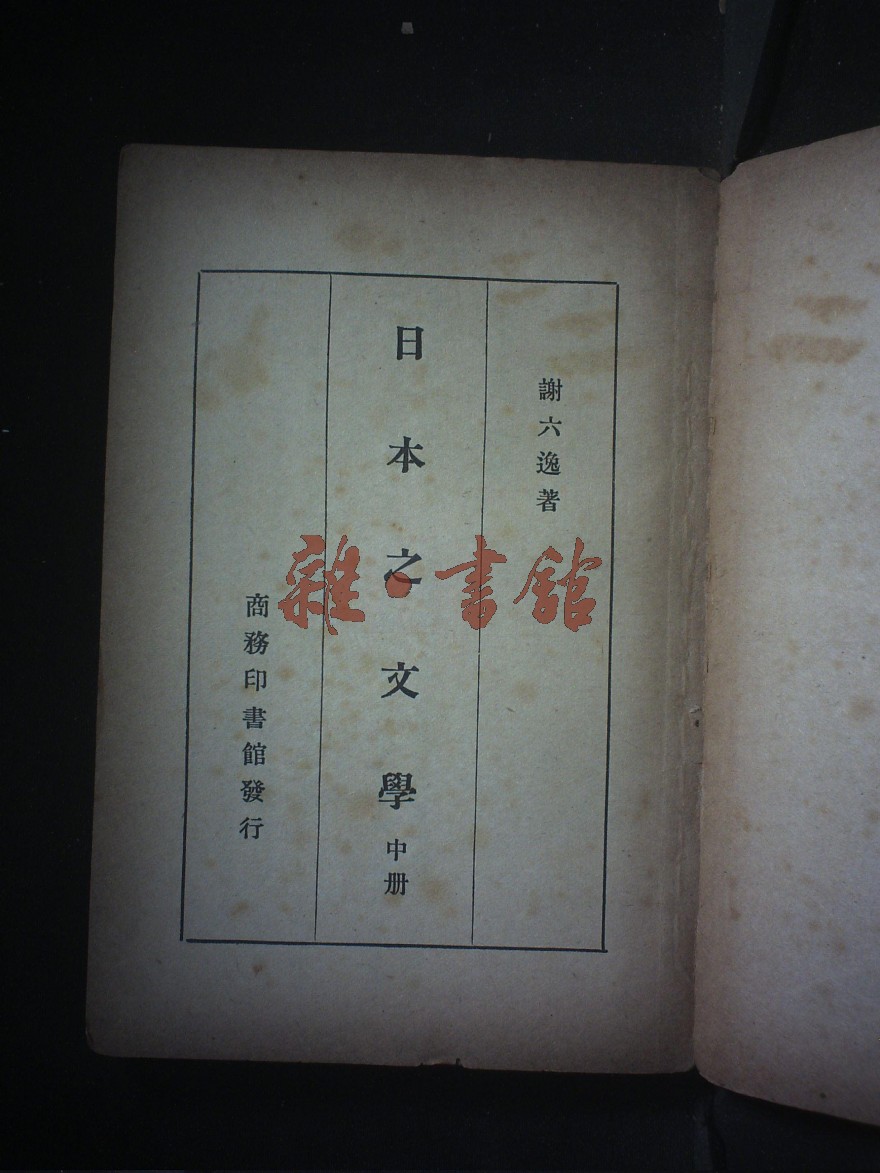 謝六逸著
日本之文學 中册
商務印書館發行
雜·書館